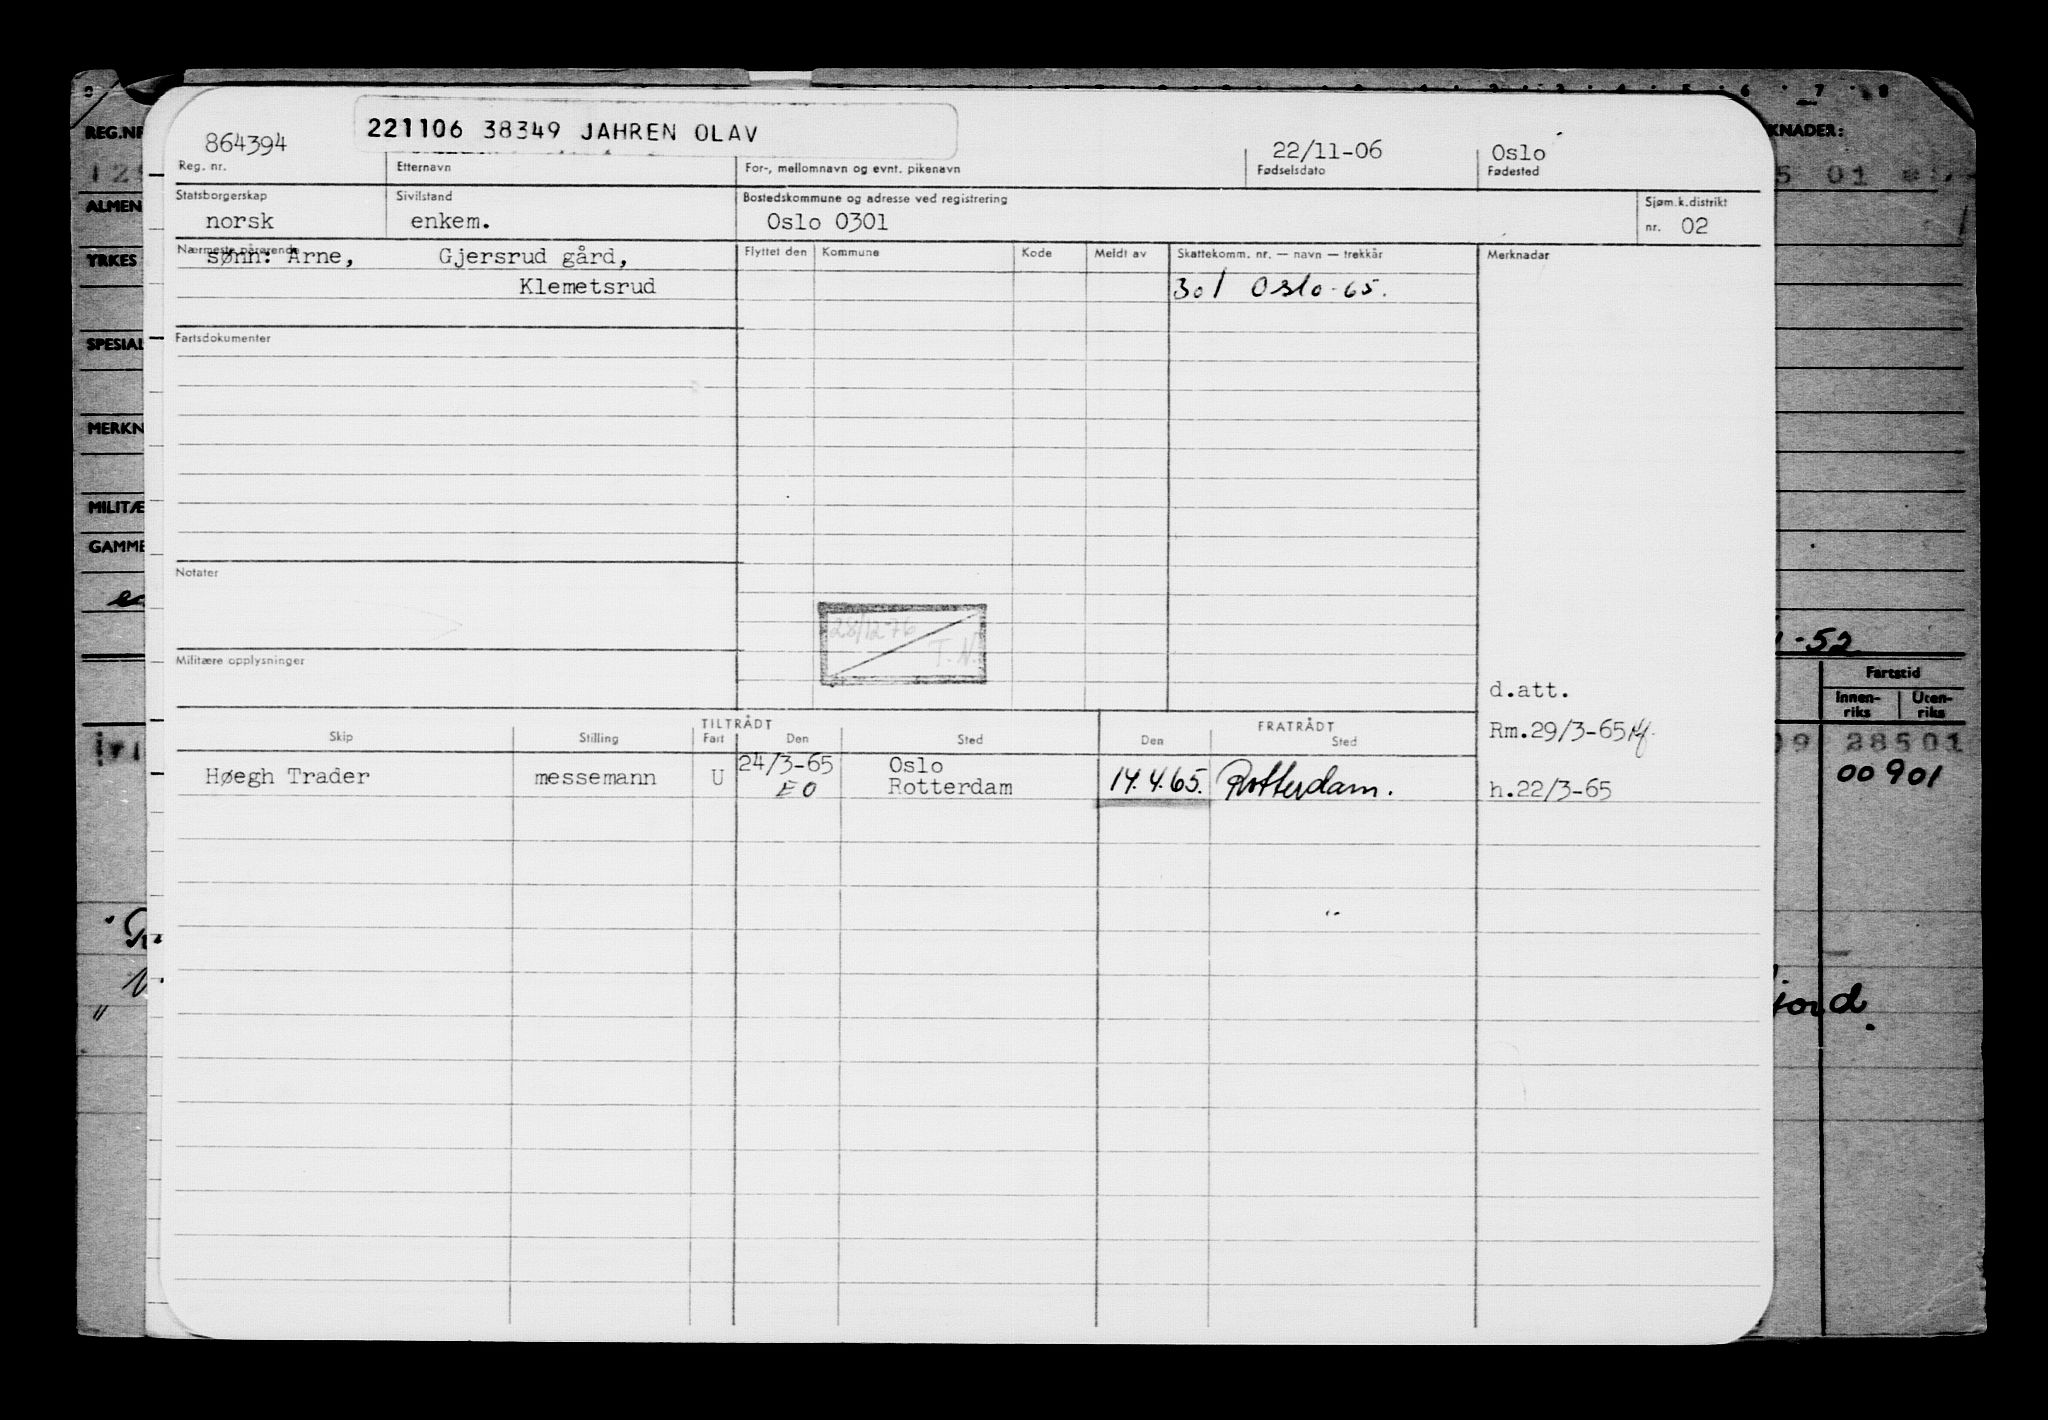 REG.NR
KNADER:
5 01
ALMEN
YRKES
SPESIAL
MERKN
MILITÆ
GAMME
1-52
Fartstid
Innen-
riks
Uten-
riks
09 28501
00901
jord.
221106 38349 JAHREN OLAV
864394
22/11-06
Oslo
Reg. nr.
Etternavn
For-, mellomnavn og evnt. pikenavn
Fødselsdato
Fødested
Statsborgerskap
Sivilstand
Bostedskommune og adresse ved registrering
Sjøm.k.distrikt
norsk
enkem.
Oslo 0301
nr. 02
Nærmeste pårørende
sønn: Arne, Gjersrud gård,
Klemetsrud
Flyttet den
Kommune
Kode
Meldt av
Skattekomm. nr. — navn — trekkår
Merknadar
301 Oslo-65.
Fartsdokumenter
Notater
28/12 76
T.N.
Militære opplysninger
d.att.
TILTRÅDT
FRATRÅDT
Skip
Stilling
Fart
Den
Sted
Den
Sted
Rm.29/3-65
24/3-65 Oslo
Høegh Trader messemann U EO Rotterdam 14.4.65. Rotterdam.
h.22/3-65